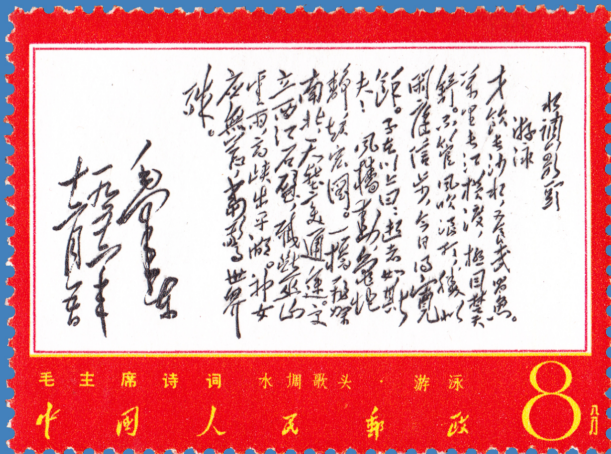 水调歌头
游泳
才饮长沙水，又食武昌鱼。
万里长江横渡，极目楚天
舒。不管风吹浪打，胜似
闲庭信步，今日得宽
馀。子在川上曰：逝者如斯
夫！风樯动，龟蛇
静，起宏图。一桥飞架
南北，天堑变通途。更
立西江石壁，截断巫山
云雨，高峡出平湖。神女
应无恙，当惊世界
殊。
毛泽东
一九五六年
十二月五日
毛主席诗词 水调歌头·游泳
中國人民郵政
8分